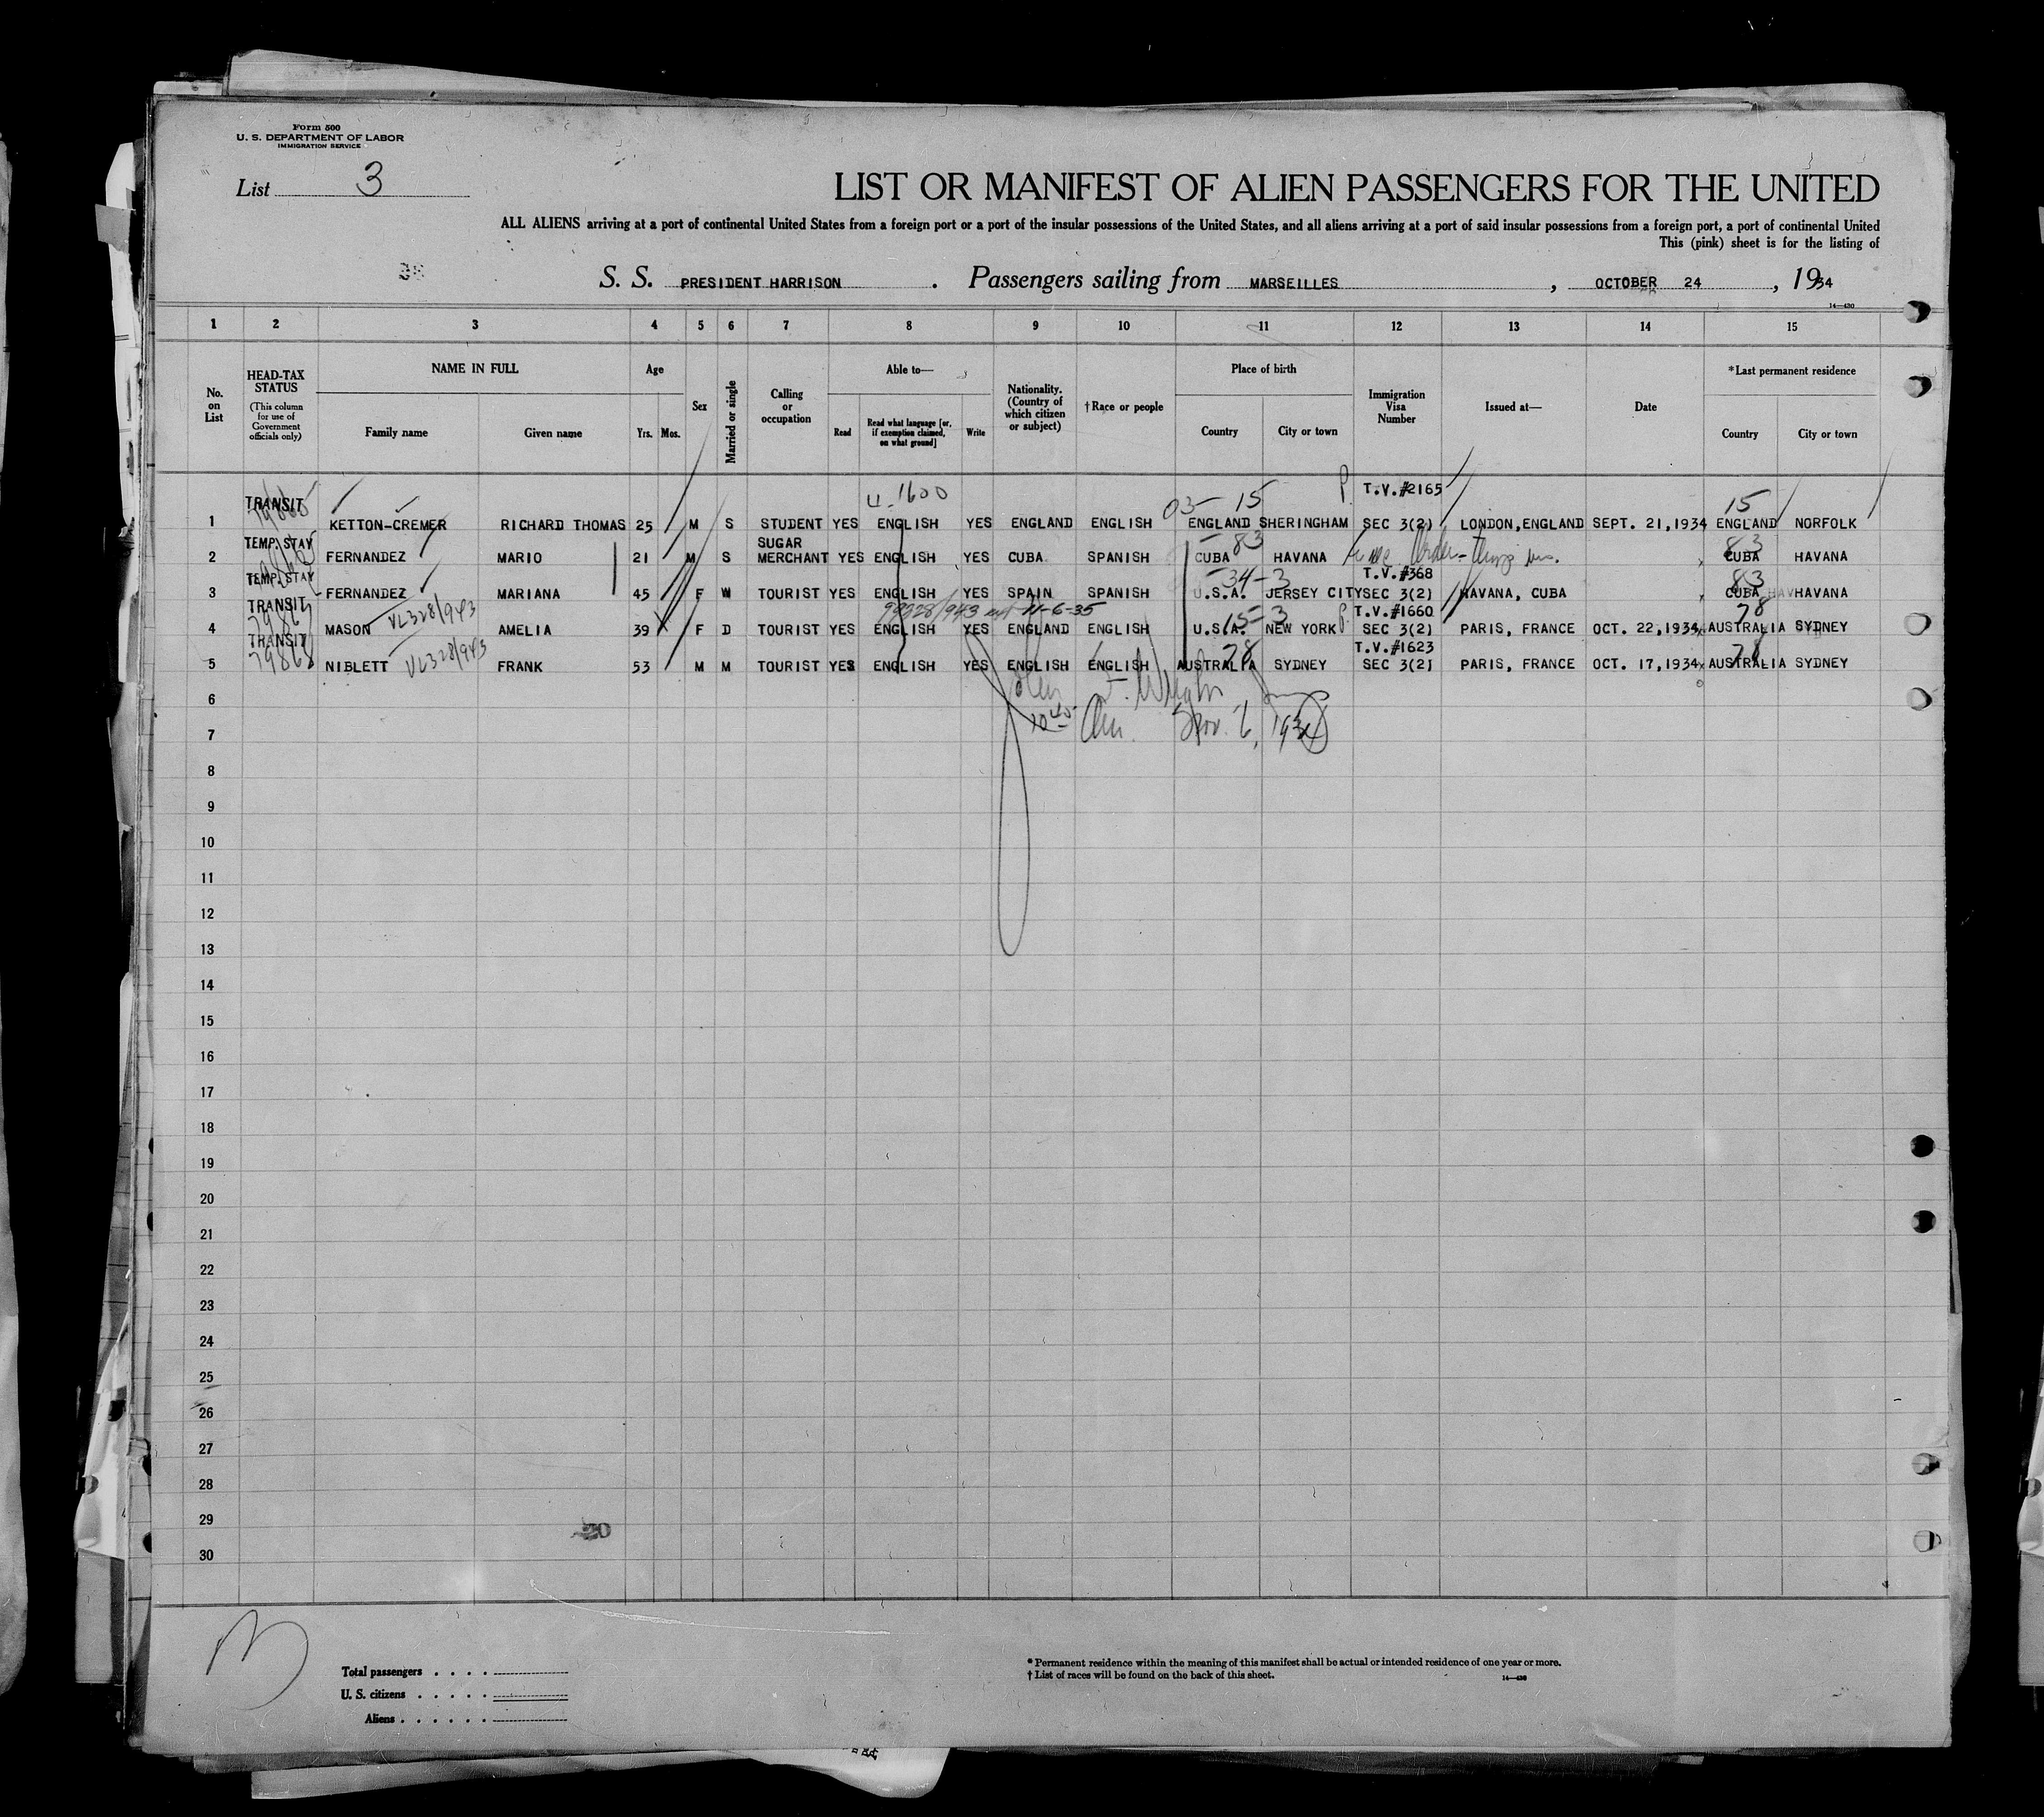 Form 500
U. S. DEPARTMENT OF LABOR
IMMIGRATION SERVICE
List 3
LIST OR MANIFEST OF ALIEN PASSENGERS FOR THE UNITED
ALL ALIENS arriving at a port of continental United States from a foreign port or a port of the insular possessions of the United States, and all aliens arriving at a port of said insular possessions from a foreign port, a port of continental United
This (pink) sheet is for the listing of
S. S. PRESIDENT HARRISON . Passengers sailing from MARSEILLES , OCTOBER 24 , 1934
14—430
1 2 3 4 5 6 7 8 9 10 11 12 13 14 15
No. on List
HEAD-TAX STATUS (This column for use of Government officials only)
NAME IN FULL
Family name Given name
Age
Yrs. Mos.
Sex
Married or single
Calling or occupation
Able to—
Read Read what language [or, if exemption claimed, on what ground] Write
Nationality. (Country of which citizen or subject)
†Race or people
Place of birth
Country City or town
Immigration Visa Number
Issued at—
Date
*Last permanent residence
Country City or town
TRANSIT 1600 03- 15 T.V.#2165 15
1 KETTON-CREMER RICHARD THOMAS 25 M S STUDENT YES ENGLISH YES ENGLAND ENGLISH ENGLAND SHERINGHAM SEC 3(2) LONDON, ENGLAND SEPT. 21, 1934 ENGLAND NORFOLK
TEMP. STAY SUGAR 83 83
2 FERNANDEZ MARIO 21 M S MERCHANT YES ENGLISH YES CUBA SPANISH CUBA HAVANA CUBA HAVANA
TEMP. STAY 34-3 T.V.#368 83
3 FERNANDEZ MARIANA 45 F W TOURIST YES ENGLISH YES SPAIN SPANISH U.S.A. JERSEY CITY SEC 3(2) HAVANA, CUBA CUBA HAVANA
TRANSIT 79867 VL328/943 99928/943 11-6-35 15-3 T.V.#1660 78
4 MASON AMELIA 39 F D TOURIST YES ENGLISH YES ENGLAND ENGLISH U.S.A. NEW YORK SEC 3(2) PARIS, FRANCE OCT. 22, 1934 AUSTRALIA SYDNEY
TRANSIT 79868 VL328/943 78 T.V.#1623 78
5 NIBLETT FRANK 53 M M TOURIST YES ENGLISH YES ENGLISH ENGLISH AUSTRALIA SYDNEY SEC 3(2) PARIS, FRANCE OCT. 17, 1934 AUSTRALIA SYDNEY
6
7 10 40 Am. Nov. 6, 1934
8
9
10
11
12
13
14
15
16
17
18
19
20
21
22
23
24
25
26
27
28
29
30
Total passengers
U. S. citizens
Aliens
* Permanent residence within the meaning of this manifest shall be actual or intended residence of one year or more.
† List of races will be found on the back of this sheet.